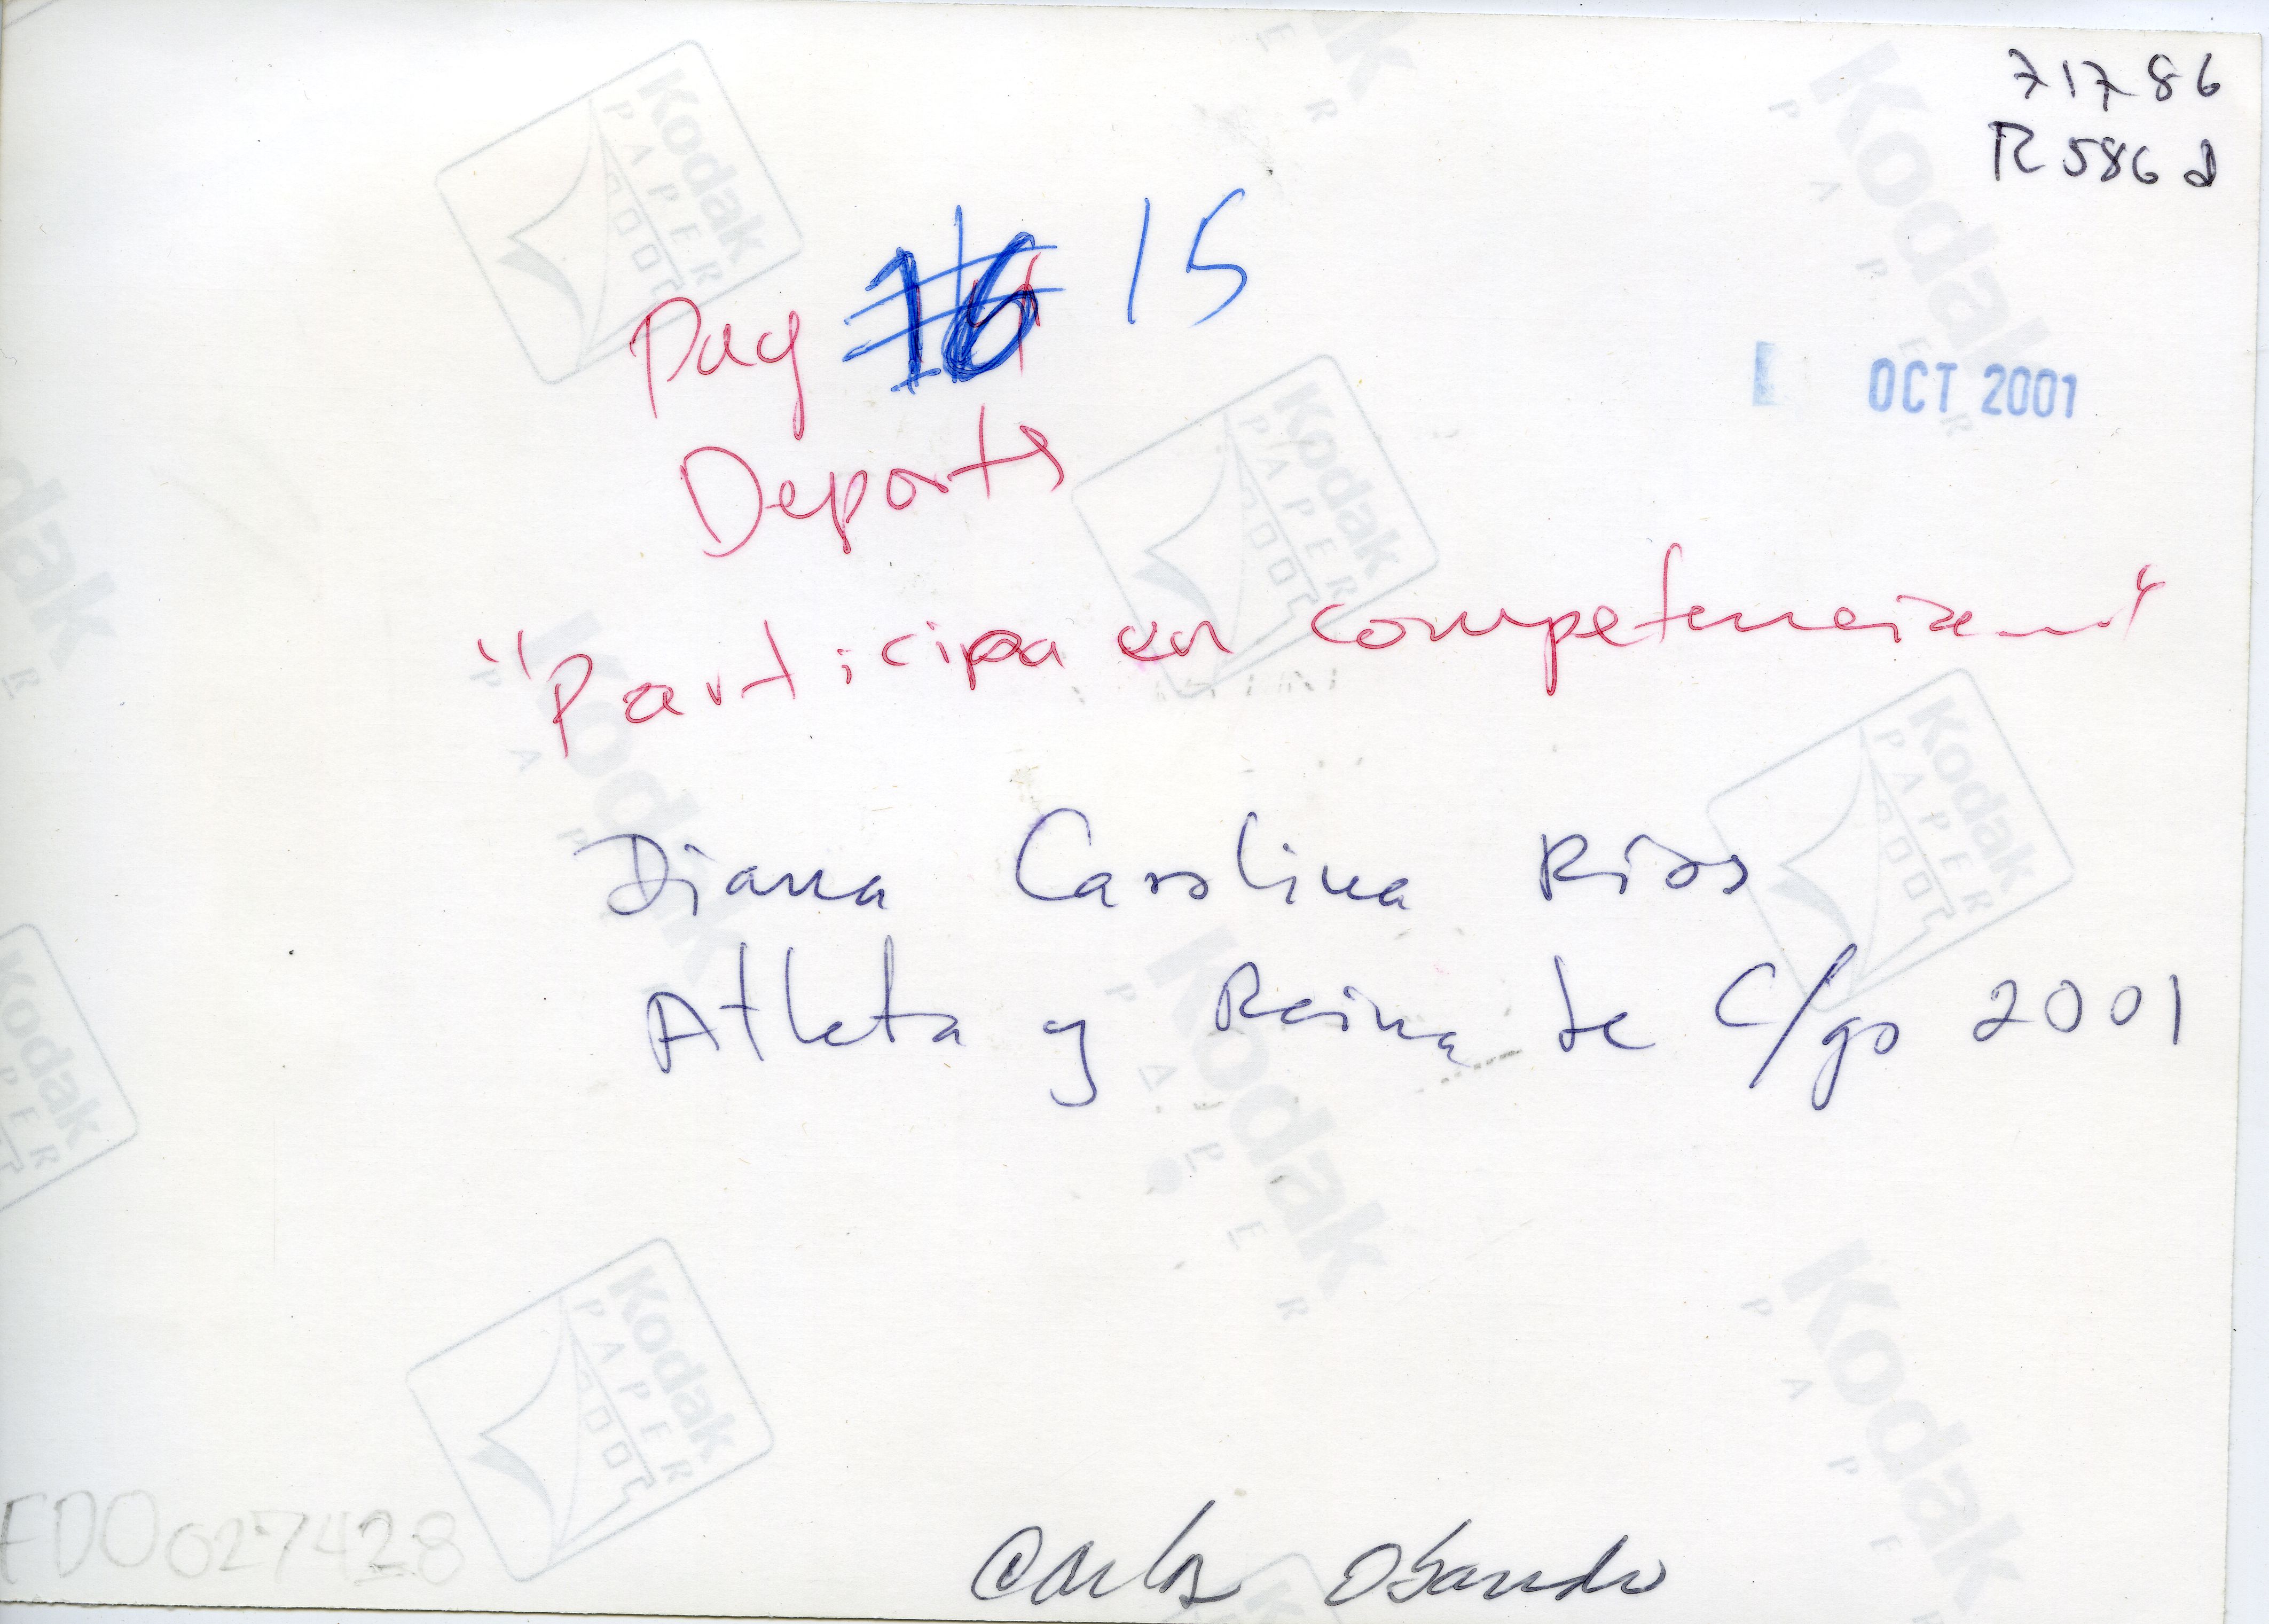 71786
R586d
Pag 16 15
OCT 2001
Deportes
"Participa en competencia"
Diana Carolina Ríos
Atleta y Reina de C/go 2001
EDO027428
Carlos Obando
Kodak
PAPER